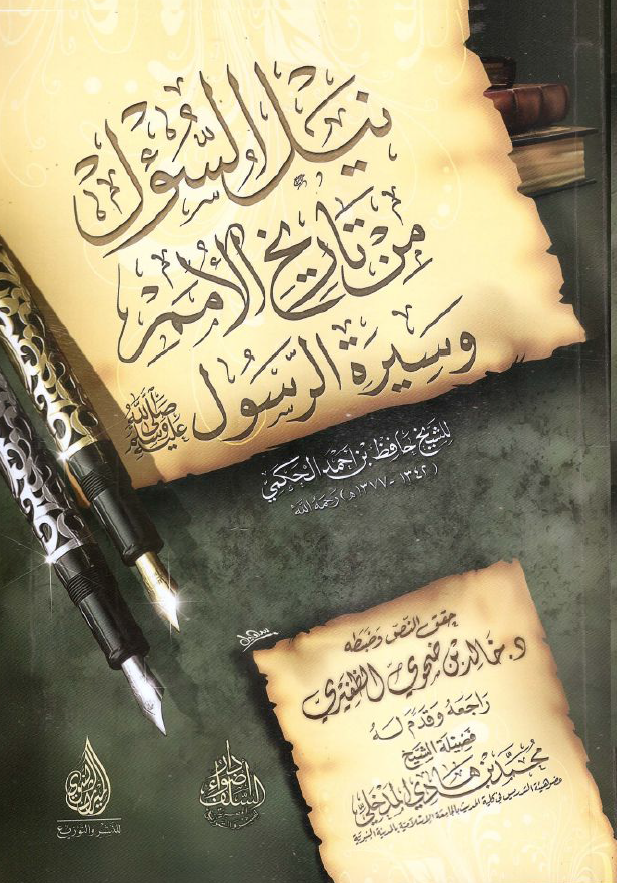 نَيْلُ السُّؤْلِ
مِنْ تَارِيخِ الأُمَمِ
وَسِيرَةِ الرَّسُولِ صَلَّى اللَّهُ عَلَيْهِ وَسَلَّمَ
للشيخ حافظ بن أحمد الحكمي
(١٣٤٢ - ١٣٧٧ هـ) رحمه الله
حقق النص وضبطه
د. خالد بن ضحوي الظفيري
راجعه وقدم له
فضيلة الشيخ
محمد بن هادي المدخلي
عضو هيئة التدريس في كلية الحديث بالجامعة الإسلامية بالمدينة النبوية
دار
أضواء
السلف
المصرية
للنشر والتوزيع
الميراث النبوي
للنشر والتوزيع